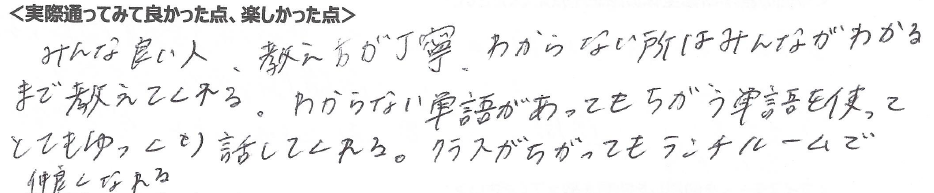 ＜実際通ってみて良かった点、楽しかった点＞
みんな良い人、教え方が丁寧、わからない所はみんながわかる
まで教えてくれる。わからない単語があってもちがう単語を使って
とてもゆっくり話してくれる。クラスがちがってもランチルームで
仲良くなれる